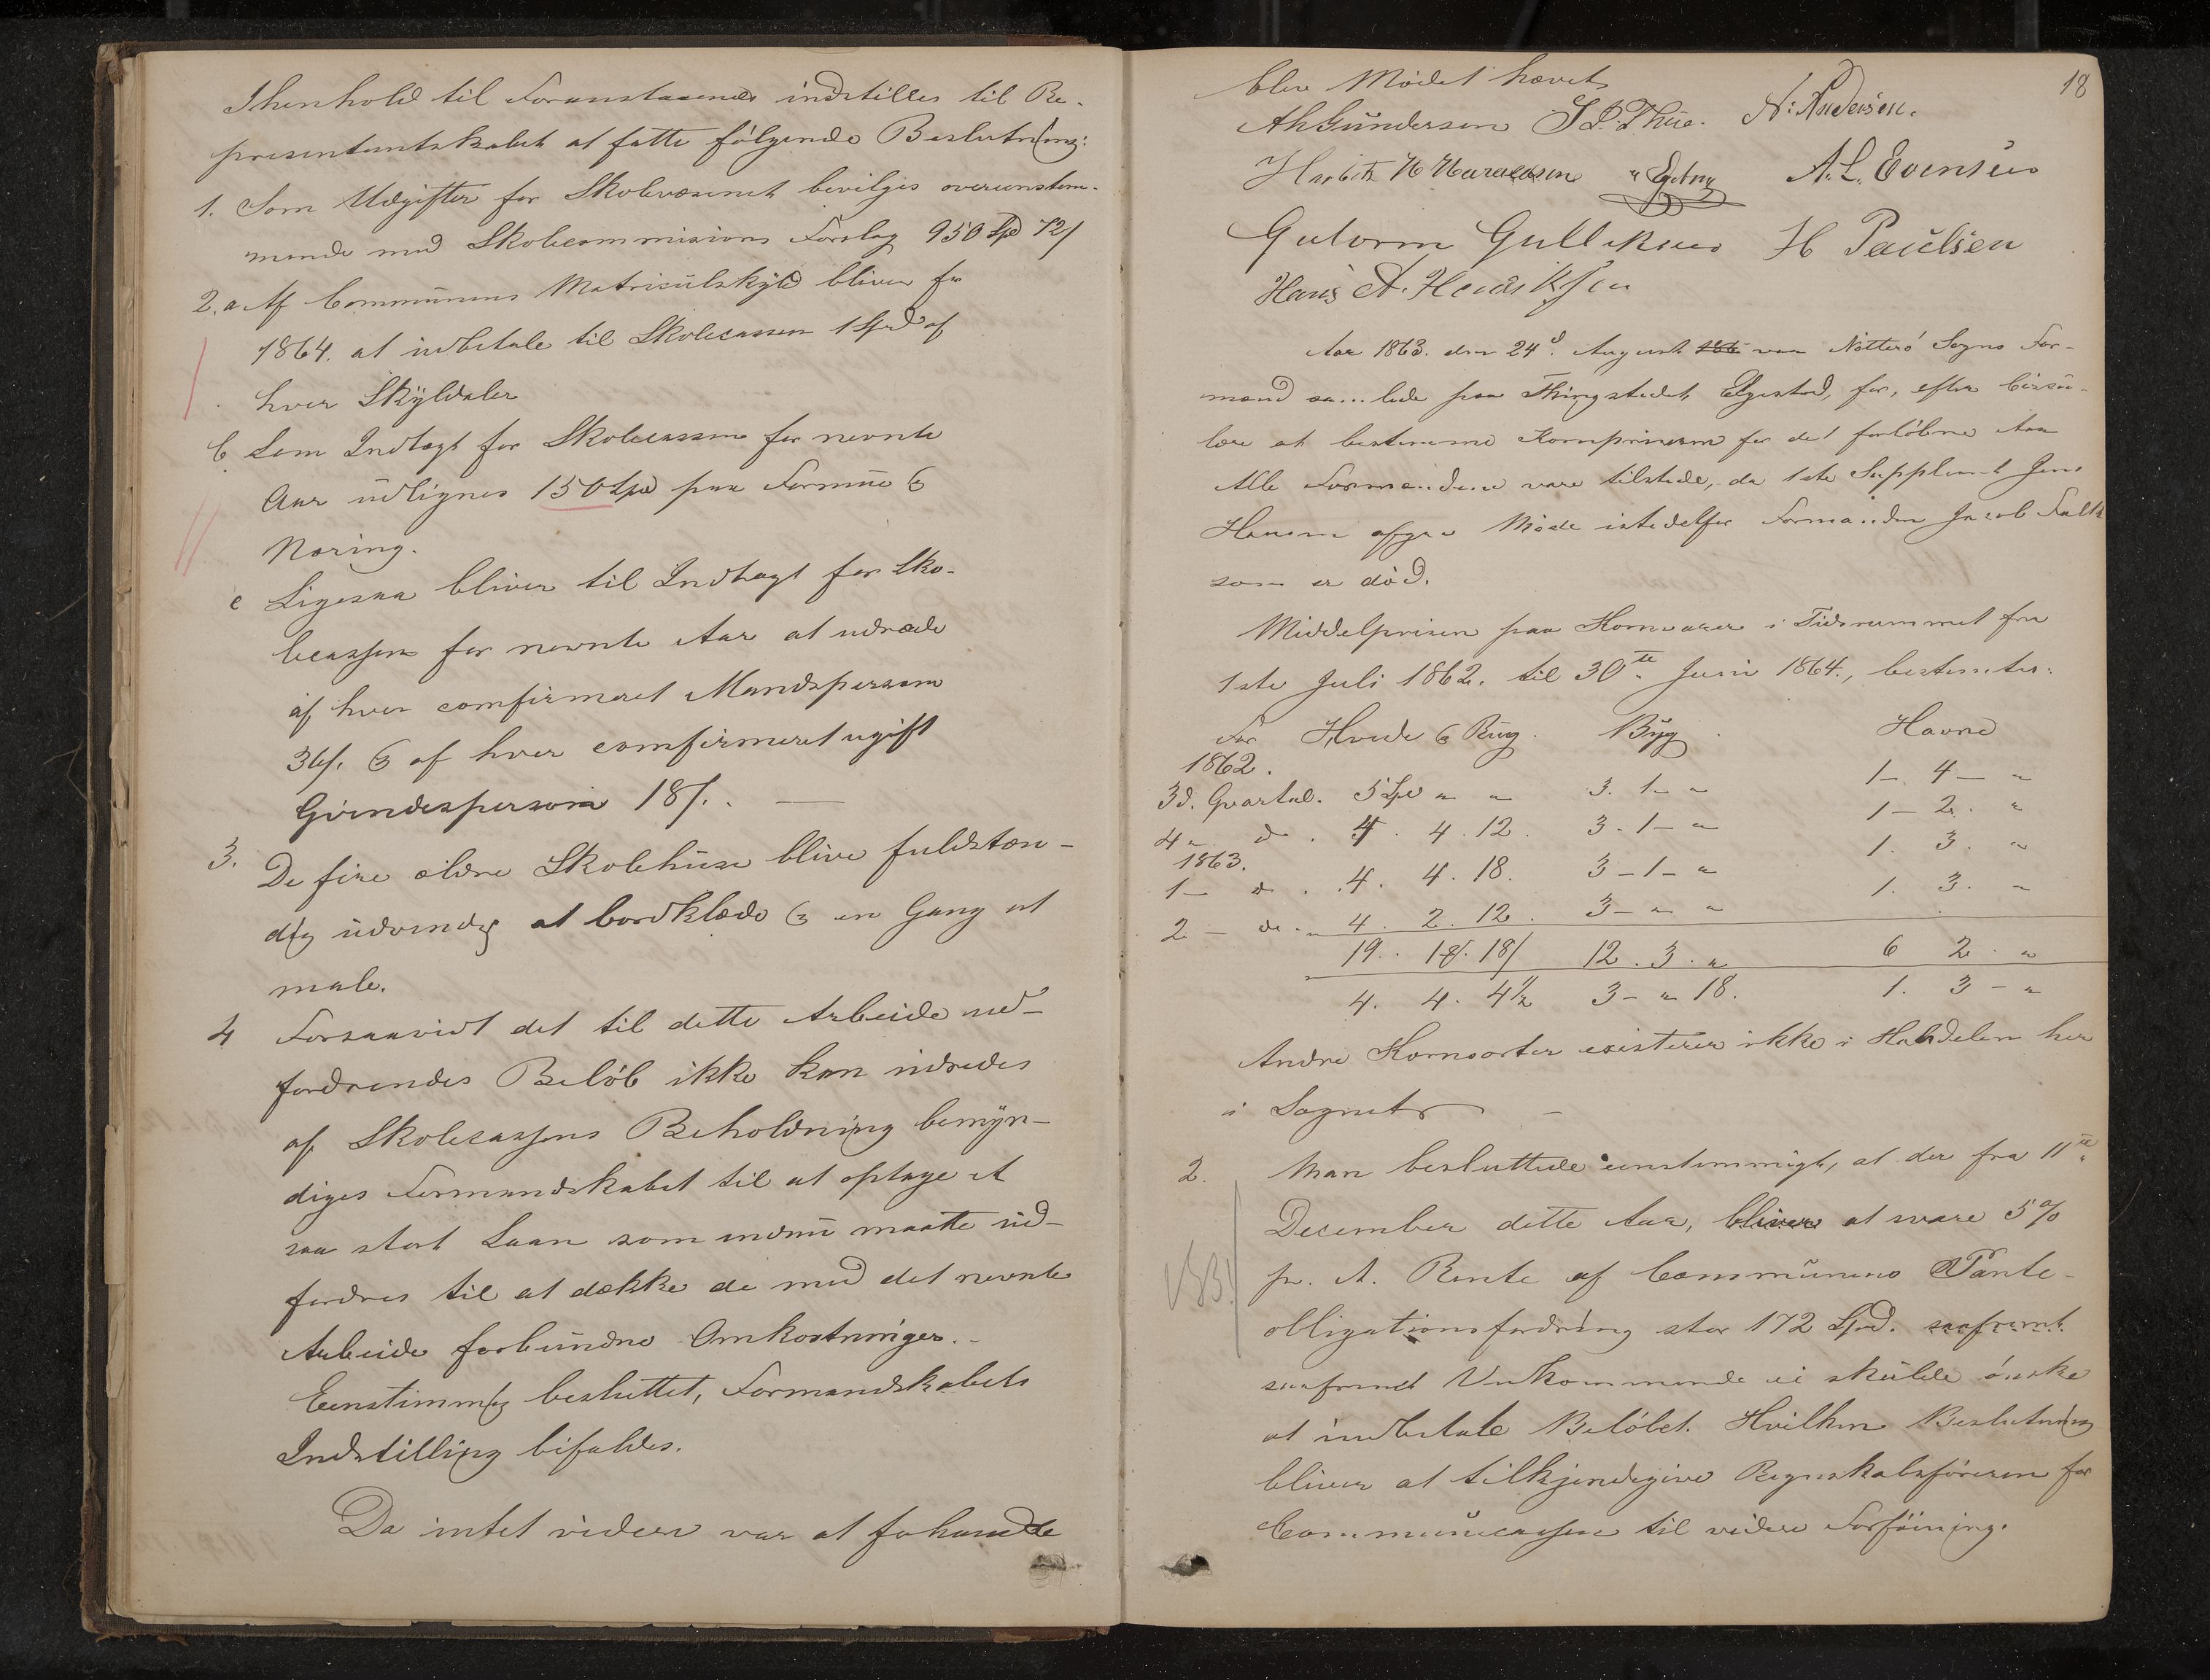 Ihenhold til Foranstaaende indstilles til Re-
presentantskabet at fatte følgende Beslutning:
1. Som Udgifter for Skolevæsenet bevilges overeenstem-
mende med Skolecommisions Forslag 950 Spd 72/
2. a Af Communens Matriculskyld bliver for
1864. at indbetale til Skolecassen 1 Spd af
hver Skyldaler
b Som Indtægt for Skolecassen for nevnte
Aar udlignes 150 Spd paa Formue &
Næring.
c Ligesaa bliver til Indtægt for Sko-
lecassen for nevnte Aar at udrede
af hver comfirmeret Mandsperson
36/. & af hver comfirmeret ugift
Qvindesperson 18/. . —
3. De fire ældre Skolehuse blive fuldstæn-
dig udvendig at bordklæde & en Gang at
male.
4 Forsaavidt det til dette Arbeide ud-
fordrendes Beløb ikke kan udredes
af Skolecassens Beholdning bemyn-
diges Formandskabet til at optage et
saa stort Laan som endnu maatte ud-
fordres til at dække de med det nevnte
Arbeide forbundne Omkostninger. -
Eenstimmig besluttet, Formandskabets
Indstilling bifaldes.
Da intet videre var at forhandle
18
blev Mødet hævet
AhGundersen S P. Thue. N: Andersen.
H. Haraldsen A. L. Evensen
Gutorm Gulliksen H Paulsen
Hans A. Hendriksen
Aar 1863. den 24d. August var Nøtterø Sogns For-
mænd sa...lede paa Thingstedet Elgestad, for, efter Circu-
lære at bestemme Kornpriserne for det forløbne Aar
Alle Formændene vare tilstede, da 1ste Suppleant Jens
Hansen afgav Møde istedetfor Formanden Jacob Falk
som er død.
Middelprisen paa Kornvarer i Tidsrummet fra
1ste Juli 1862. til 30te Juni 1864., bestemtes:
For Hvede & Rug. Byg. Havre
1862.
3d. Qvartal. 5 Spd " " 3. 1 - " 1 - 4 - "
4 " do . 4 . 4 . 12 . 3 - 1 - " 1 - 2. "
1863.
1 - do . . 4. 4. 18. 3 - 1 - " 1. 3. "
2 - do . " 4. 2. 12. 3 - " " 1. 3. "
19. . 18/ 12 . 3 . " 6 2 "
4. 4. 4½ 3 - " 18. 1. 3 - "
Andre Kornsorter existerer ikke i Handelen her
i Sognet -
2. Man besluttede eenstemmigt, at der fra 11te
December dette Aar, bliver at svare 5%
pr. A. Rente af Communens Pante-
obligationsfordring stor 172 Spd. saafremt
saafremt Vedkommende ei skulde ønske
at indbetale Beløbet. Hvilken Beslutning
bliver at tilkjendegive Regnskabsføreren for
Communecassen til videre Forføining.